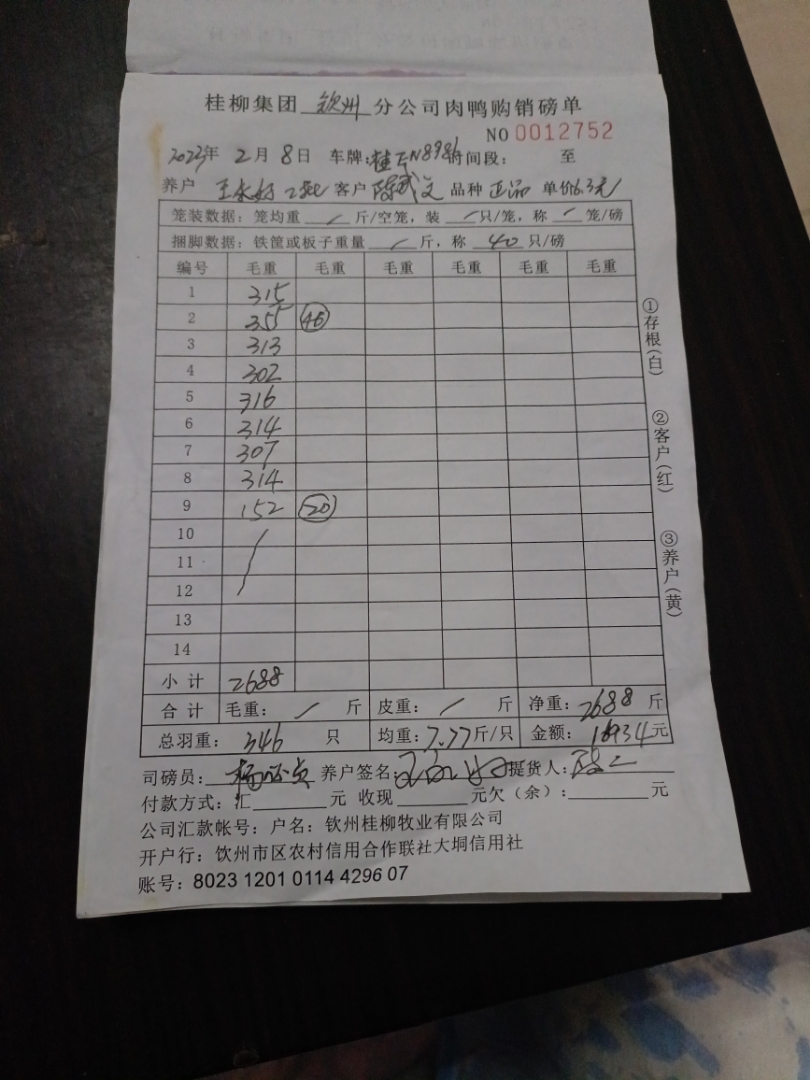 桂柳集团 钦州 分公司肉鸭购销磅单
NO 0012752
2023年 2月 8日 车牌:桂 N8986 时间段: 至
养户 客户 品种 正品 单价6.3元/
笼装数据: 笼均重 / 斤/空笼, 装 / 只/笼, 称 / 笼/磅
捆脚数据: 铁筐或板子重量 / 斤, 称 40 只/磅
编号 毛重 毛重 毛重 毛重 毛重 毛重
1 315
2 355 46
3 313
4 302
5 316
6 314
7 307
8 314
9 152 20
10
11
12
13
14
小计 2688
合计 毛重: / 斤 皮重: / 斤 净重: 2688 斤
总羽重: 346 只 均重: 7.77斤/只 金额: 16934元
司磅员: 养户签名: 提货人:
付款方式: 汇 元 收现 元欠(余): 元
公司汇款帐号: 户名: 钦州桂柳牧业有限公司
开户行: 钦州市区农村信用合作联社大垌信用社
账号: 8023 1201 0114 4296 07
①存根(白)
②客户(红)
③养户(黄)